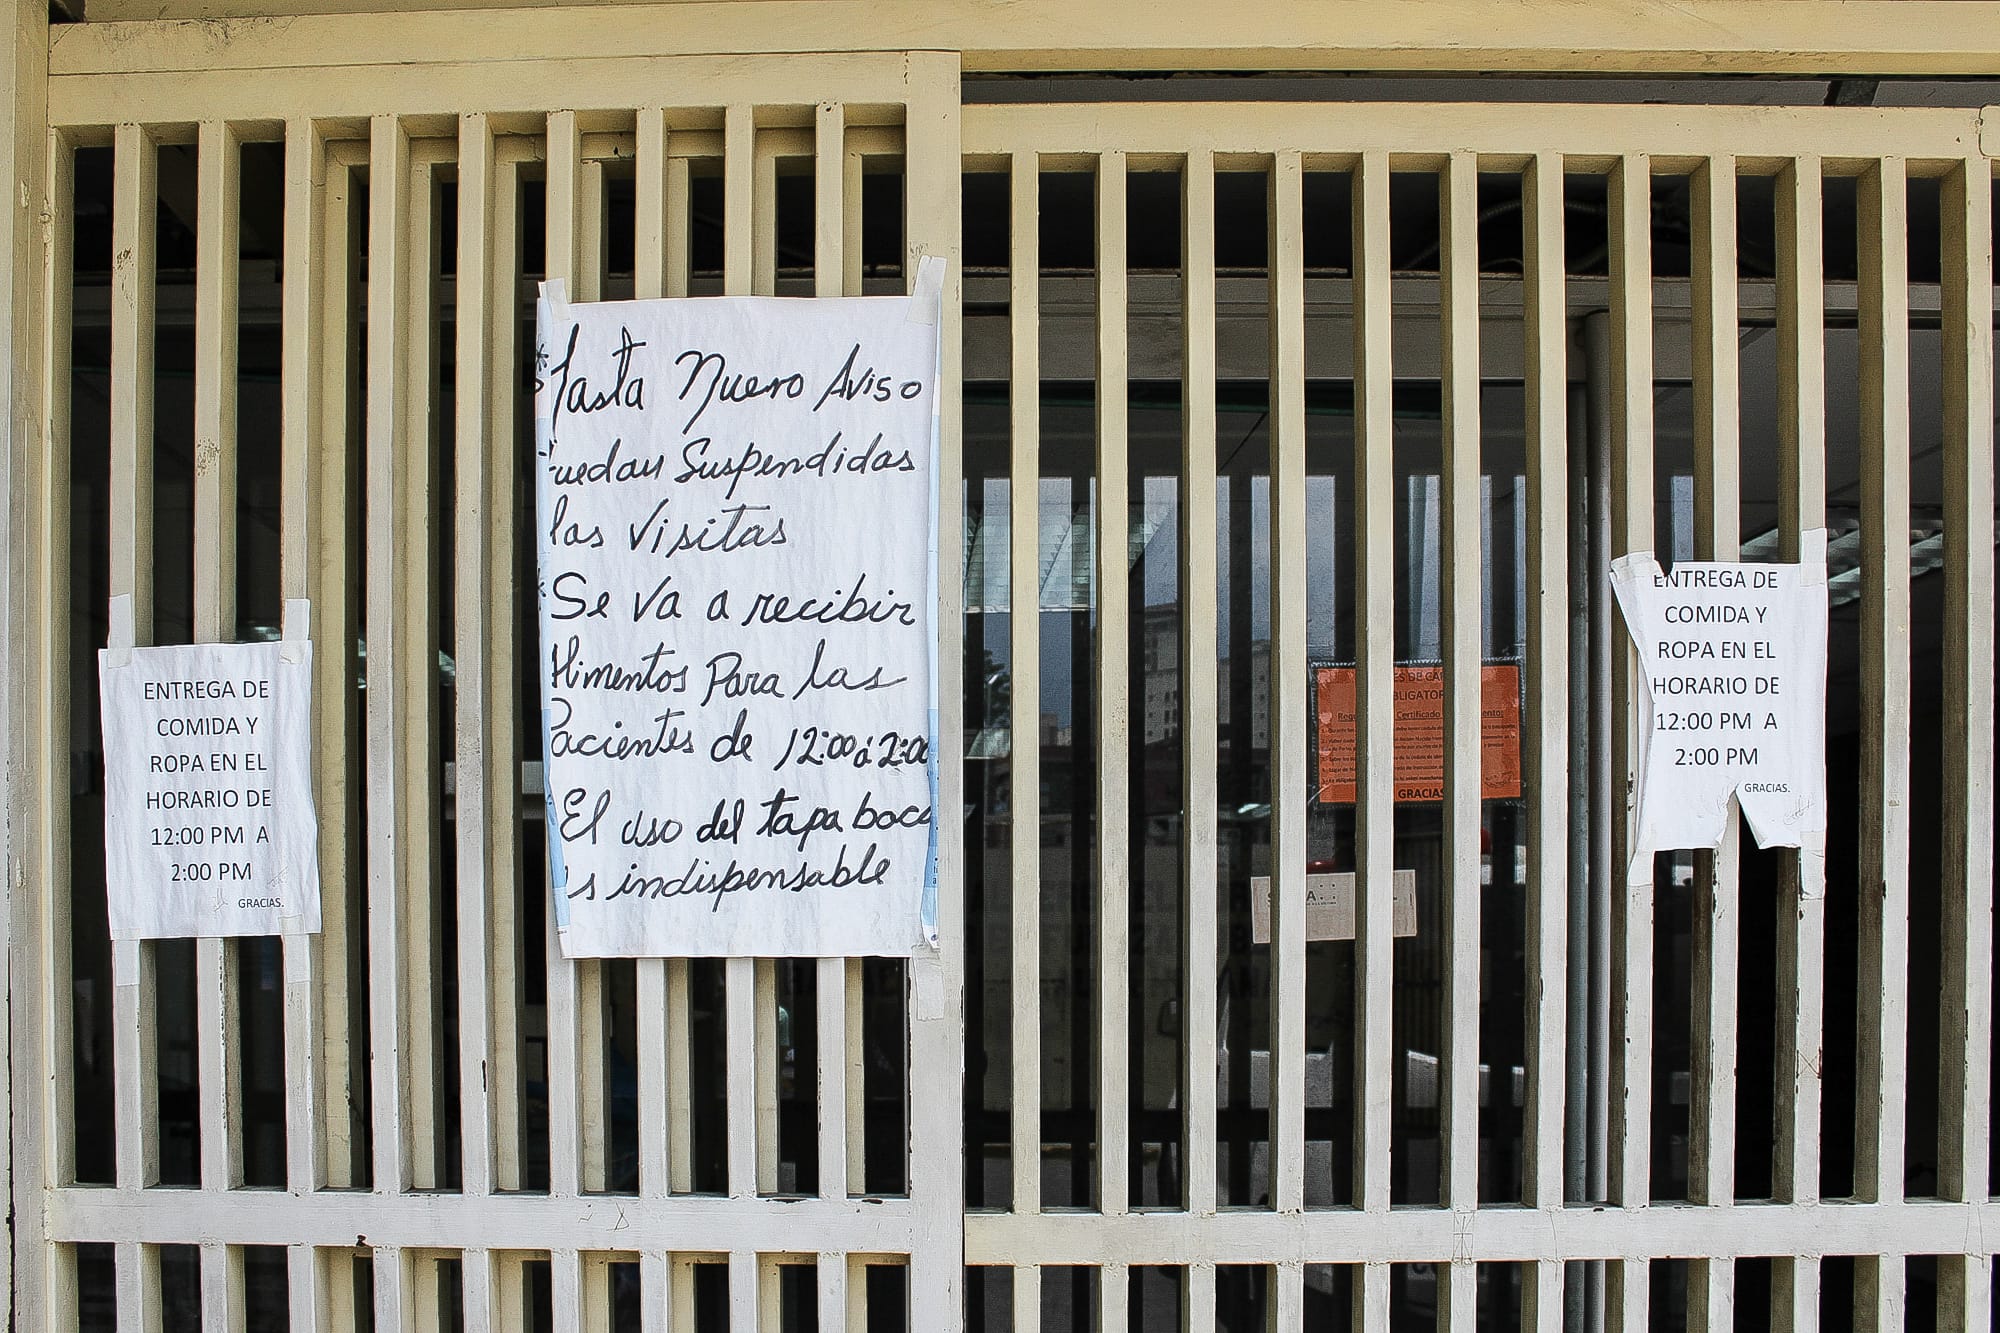 ENTREGA DE
COMIDA Y
ROPA EN EL
HORARIO DE
12:00 PM A
2:00 PM
GRACIAS.
*Hasta Nuevo Aviso
Quedan Suspendidas
las Visitas
*Se va a recibir
Alimentos Para las
Pacientes de 12:00 á 2:00
El uso del tapa boca
es indispensable
GRACIAS
ENTREGA DE
COMIDA Y
ROPA EN EL
HORARIO DE
12:00 PM A
2:00 PM
GRACIAS.